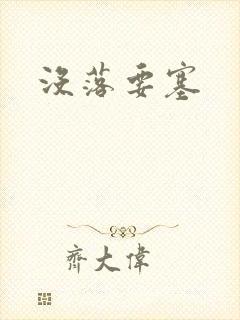 没落要塞
齊大偉